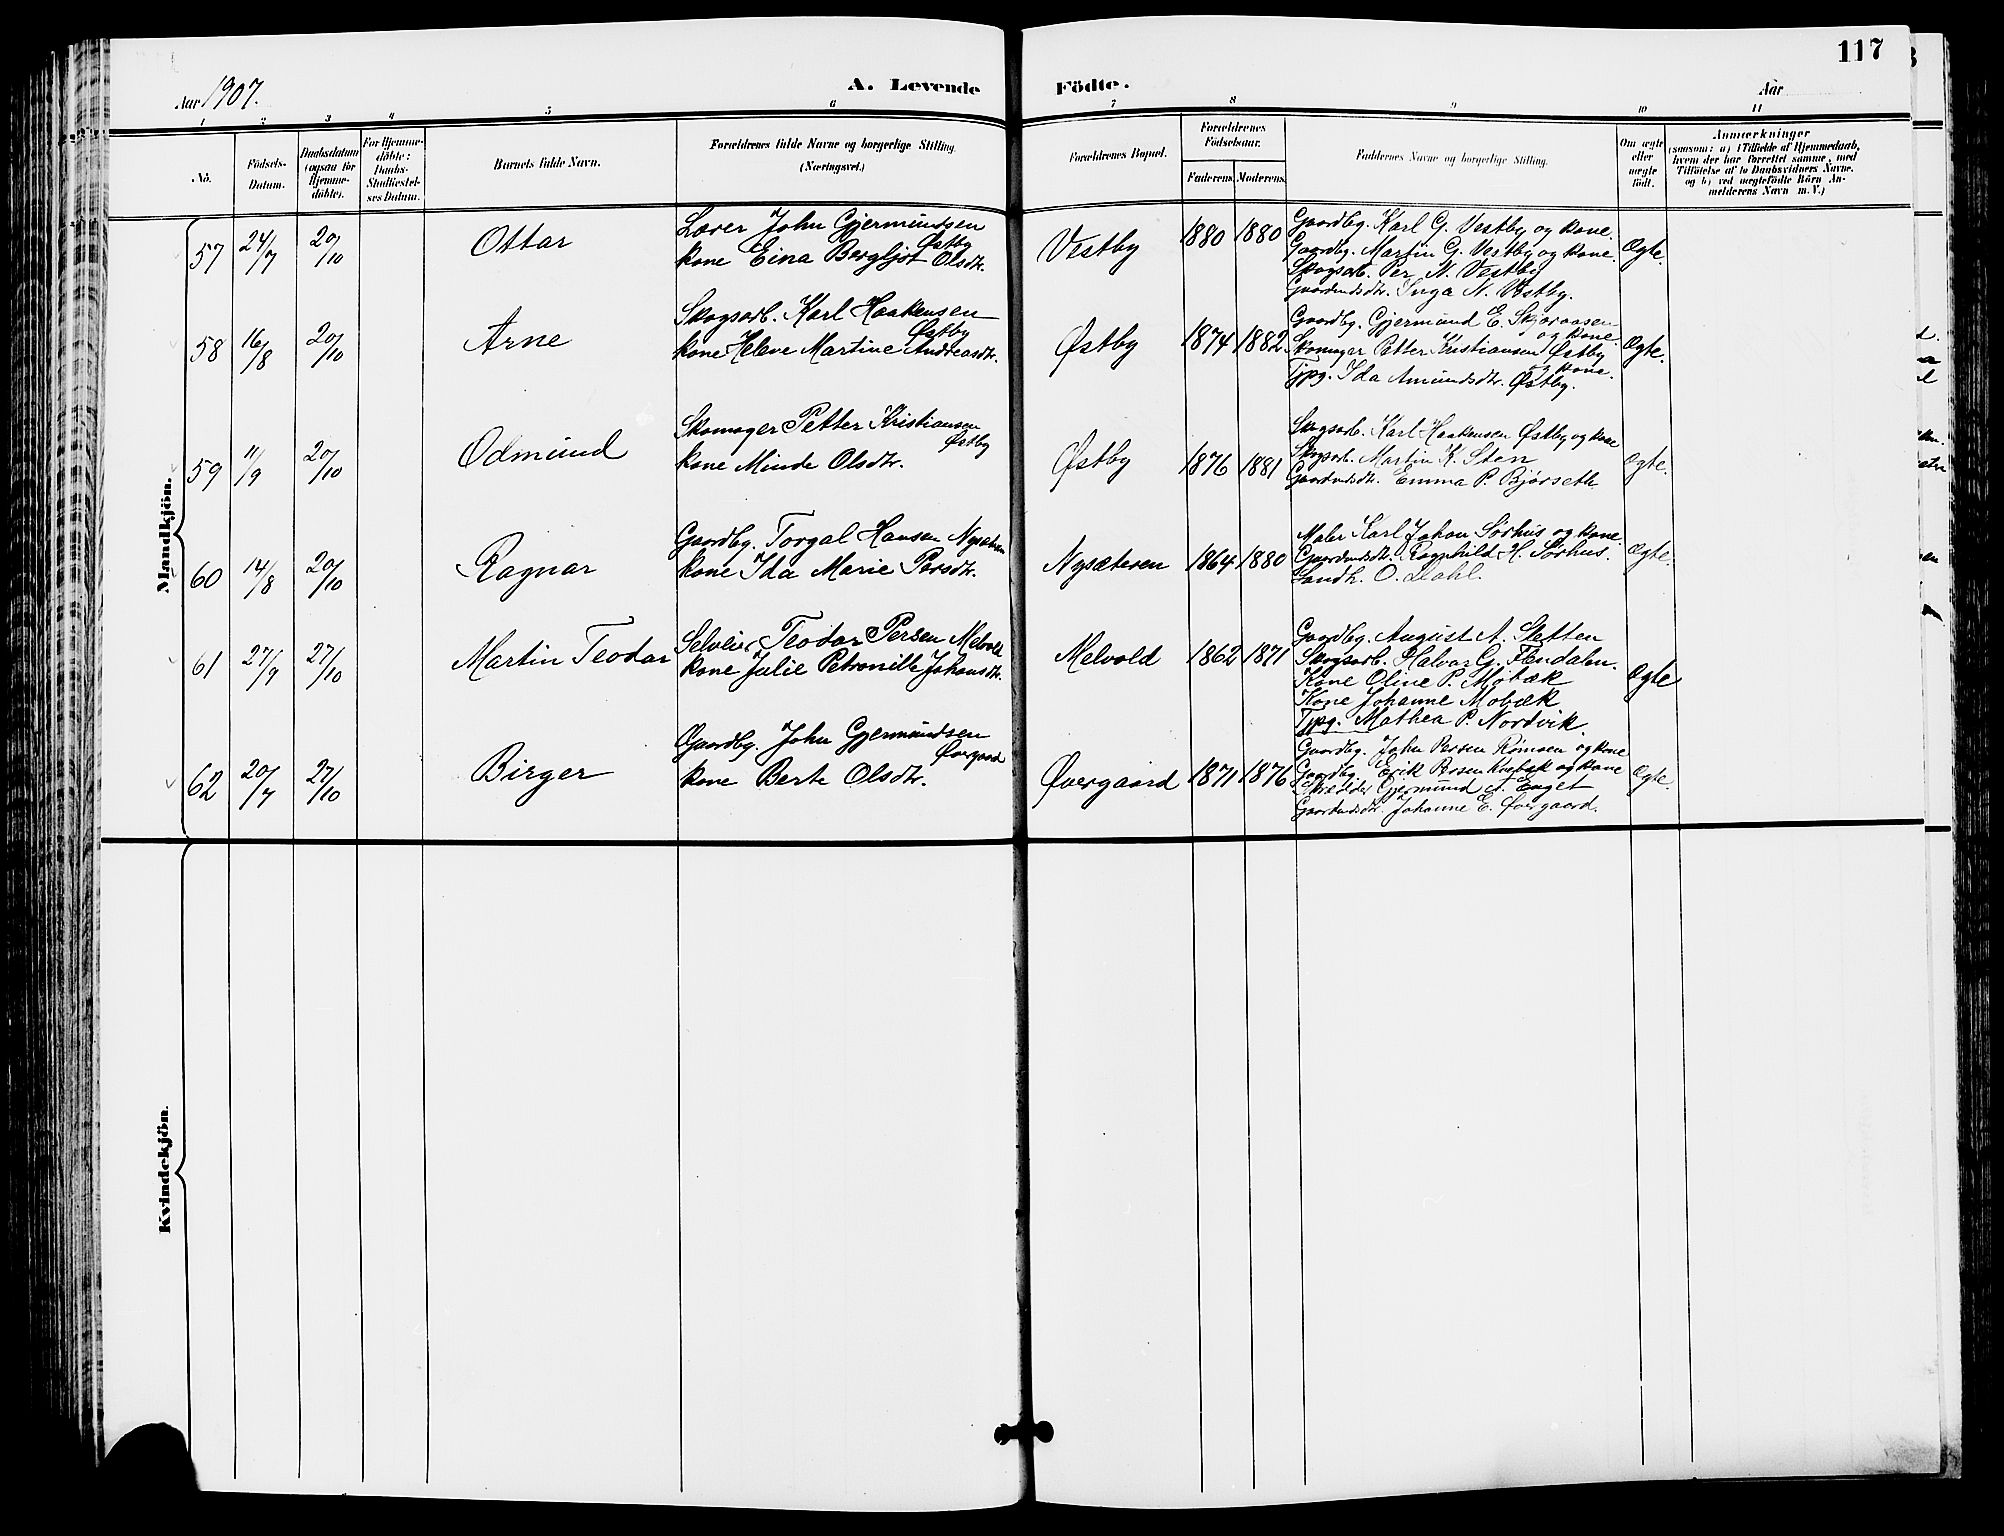 117
Aar 1907.
A. Levende Födte.
Aar
1 2 3 4 5 6 7 8 9 10 11
No.
Födsels-Datum.
Daabsdatum (ogsaa for Hjemme-döbte).
For Hjemme-döbte: Daabs-Stadfæstel-ses Datum.
Barnets fulde Navn.
Forældrenes fulde Navne og borgerlige Stilling. (Næringsvei.)
Forældrenes Bopæl.
Forældrenes Födselsaar.
Faderens. Moderens.
Faddernes Navne og borgerlige Stilling.
Om ægte eller uægte født.
Anmærkninger
(saasom: a) i Tilfælde af Hjemmedaab,
hvem der har forrettet samme, med
Tilföielse af to Daabsvidners Navne,
og b) ved uægtefödte Börn An-
melderens Navn m. V.)
Mandkjön.
57 24/7 20/10 Ottar
Lærer John Gjermundsen Østby
kone Eina Bergljot Olsdtr.
Vestby 1880 1880
Gaardbg. Karl G. Vestby og kone.
Gaardbg. Martin G. Vestby og kone.
Skogsarb. Per N. Vestby
Gaardmdsdtr. Inga N. Vestby.
Ægte.
58 16/8 20/10 Arne
Skogsarb. Karl Haakensen Østby
kone Helene Martine Andreasdtr.
Østby 1874 1882
Gaardbg. Gjermund E. Skjæraasen og kone.
Skomager Petter Kristiansen Østby og kone.
Tjpg. Ida Amundsdtr. Østby.
Ægte.
59 11/9 20/10 Odmund
Skomager Petter Kristiansen Østby
kone Minda Olsdtr.
Østby 1876 1881
Skogsarb. Karl Haakensen Østby og kone
Skogsarb. Martin K. Sten
Gaardmdsdtr. Emma P. Bjørseth
Ægte.
60 14/8 20/10 Ragnar
Gaardbg. Torgal Hansen Nysæteren
kone Ida Marie Persdtr.
Nysæteren 1864 1880
Maler Karl Johan Sørhus og kone.
Gaardmdsdtr. Ragnhild H. Sørhus.
Landh. O. Dahl.
Ægte.
61 27/9 27/10 Martin Teodor
Selveier Teodor Persen Melvold
kone Julie Petronille Johansdtr.
Melvold 1862 1871
Gaardbg. August A. Sletten
Skogsarb. Halvor G. Flendalen.
Kone Oline P. Mobæk
Kone Johanne Mobæk
Tjpg. Mathea P. Nordvik.
Ægte
62 20/7 27/10 Birger
Gaardbg. John Gjermundsen Øvergaard
kone Berte Olsdtr.
Øvergaard 1871 1876
Gaardbg. John Persen Rømoen og kone
Gaardbg. Erik Persen Kvebæk og kone
Skrædder Gjermund A. Enget
Gaardmdsdtr. Johanne E. Øvergaard.
Ægte.
Kvindekjön.